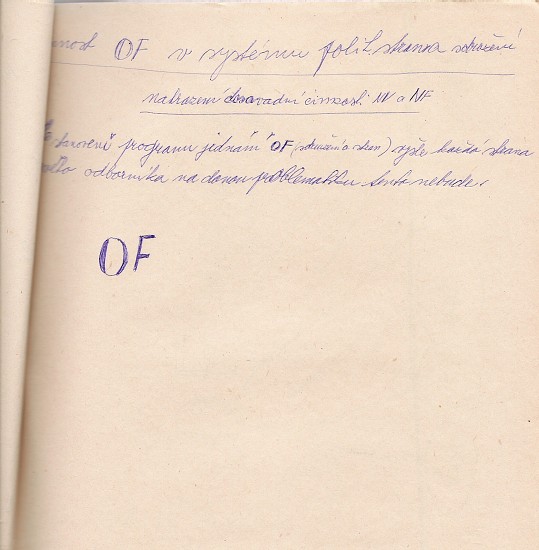 nost OF v systému polit. stran a sdružení
nahrazení dosavadní činnosti NV a NF
stanovení programu jednání OF (sdružení a stran) vyšle každá strana
odborníka na danou problematiku tento nebude
OF